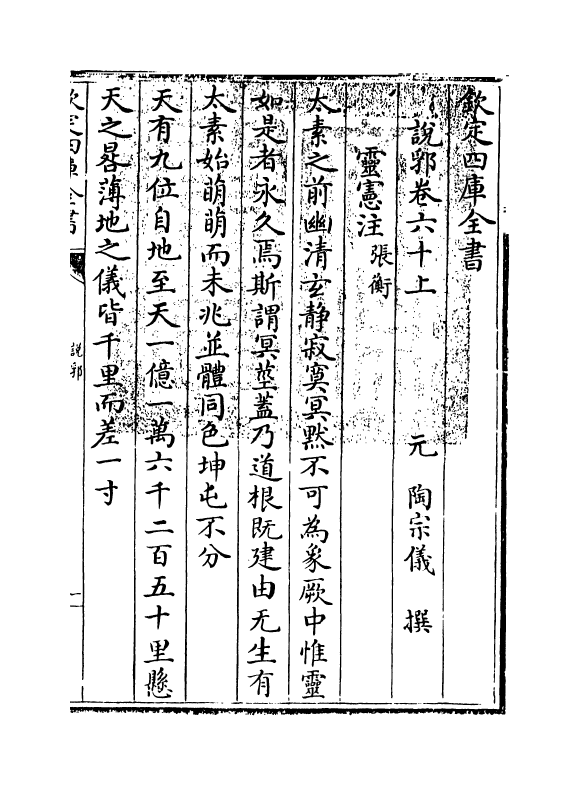 欽定四庫全書
說郛卷六十上
元 陶宗儀 撰
靈憲注 張衡
太素之前幽清玄静寂寞冥黙不可為象厥中惟靈
如是者永久焉斯謂冥莖蓋乃道根既建由无生有
太素始萌萌而未兆並體同色坤屯不分
天有九位自地至天一億一萬六千二百五十里懸
天之晷薄地之儀皆千里而差一寸
欽定四庫全書
說郛
一